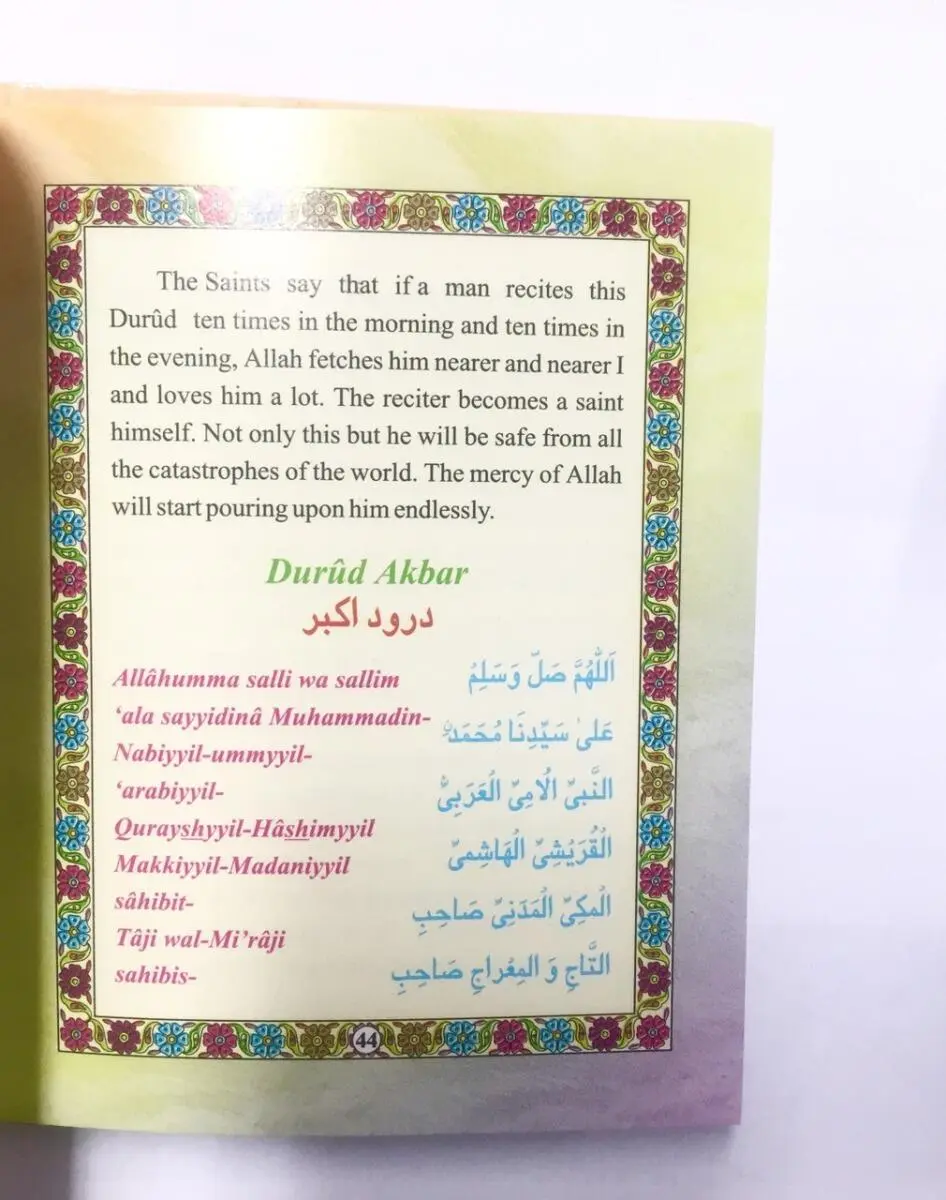 The Saints say that if a man recites this
Durûd ten times in the morning and ten times in
the evening, Allah fetches him nearer and nearer I
and loves him a lot. The reciter becomes a saint
himself. Not only this but he will be safe from all
the catastrophes of the world. The mercy of Allah
will start pouring upon him endlessly.
Durûd Akbar
درود اکبر
Allâhumma salli wa sallim
‘ala sayyidinâ Muhammadin-
Nabiyyil-ummyyil-
‘arabiyyil-
Qurayshyyil-Hâshimyyil
Makkiyyil-Madaniyyil
sâhibit-
Tâji wal-Mi’râji
sahibis-
اَللّٰهُمَّ صَلِّ وَسَلِمُ
عَلیٰ سَیِّدِنَا مُحَمَدٍ
النَّبیِّ الُامِیِّ الُعَرَبِیِّ
الُقُرَیُشِیِّ الُهَاشِمیِّ
الُمکِیِّ الُمَدَنِیِّ صَاحِبِ
التَّاجِ وَ المِعُراجِ صَاحِبِ
44